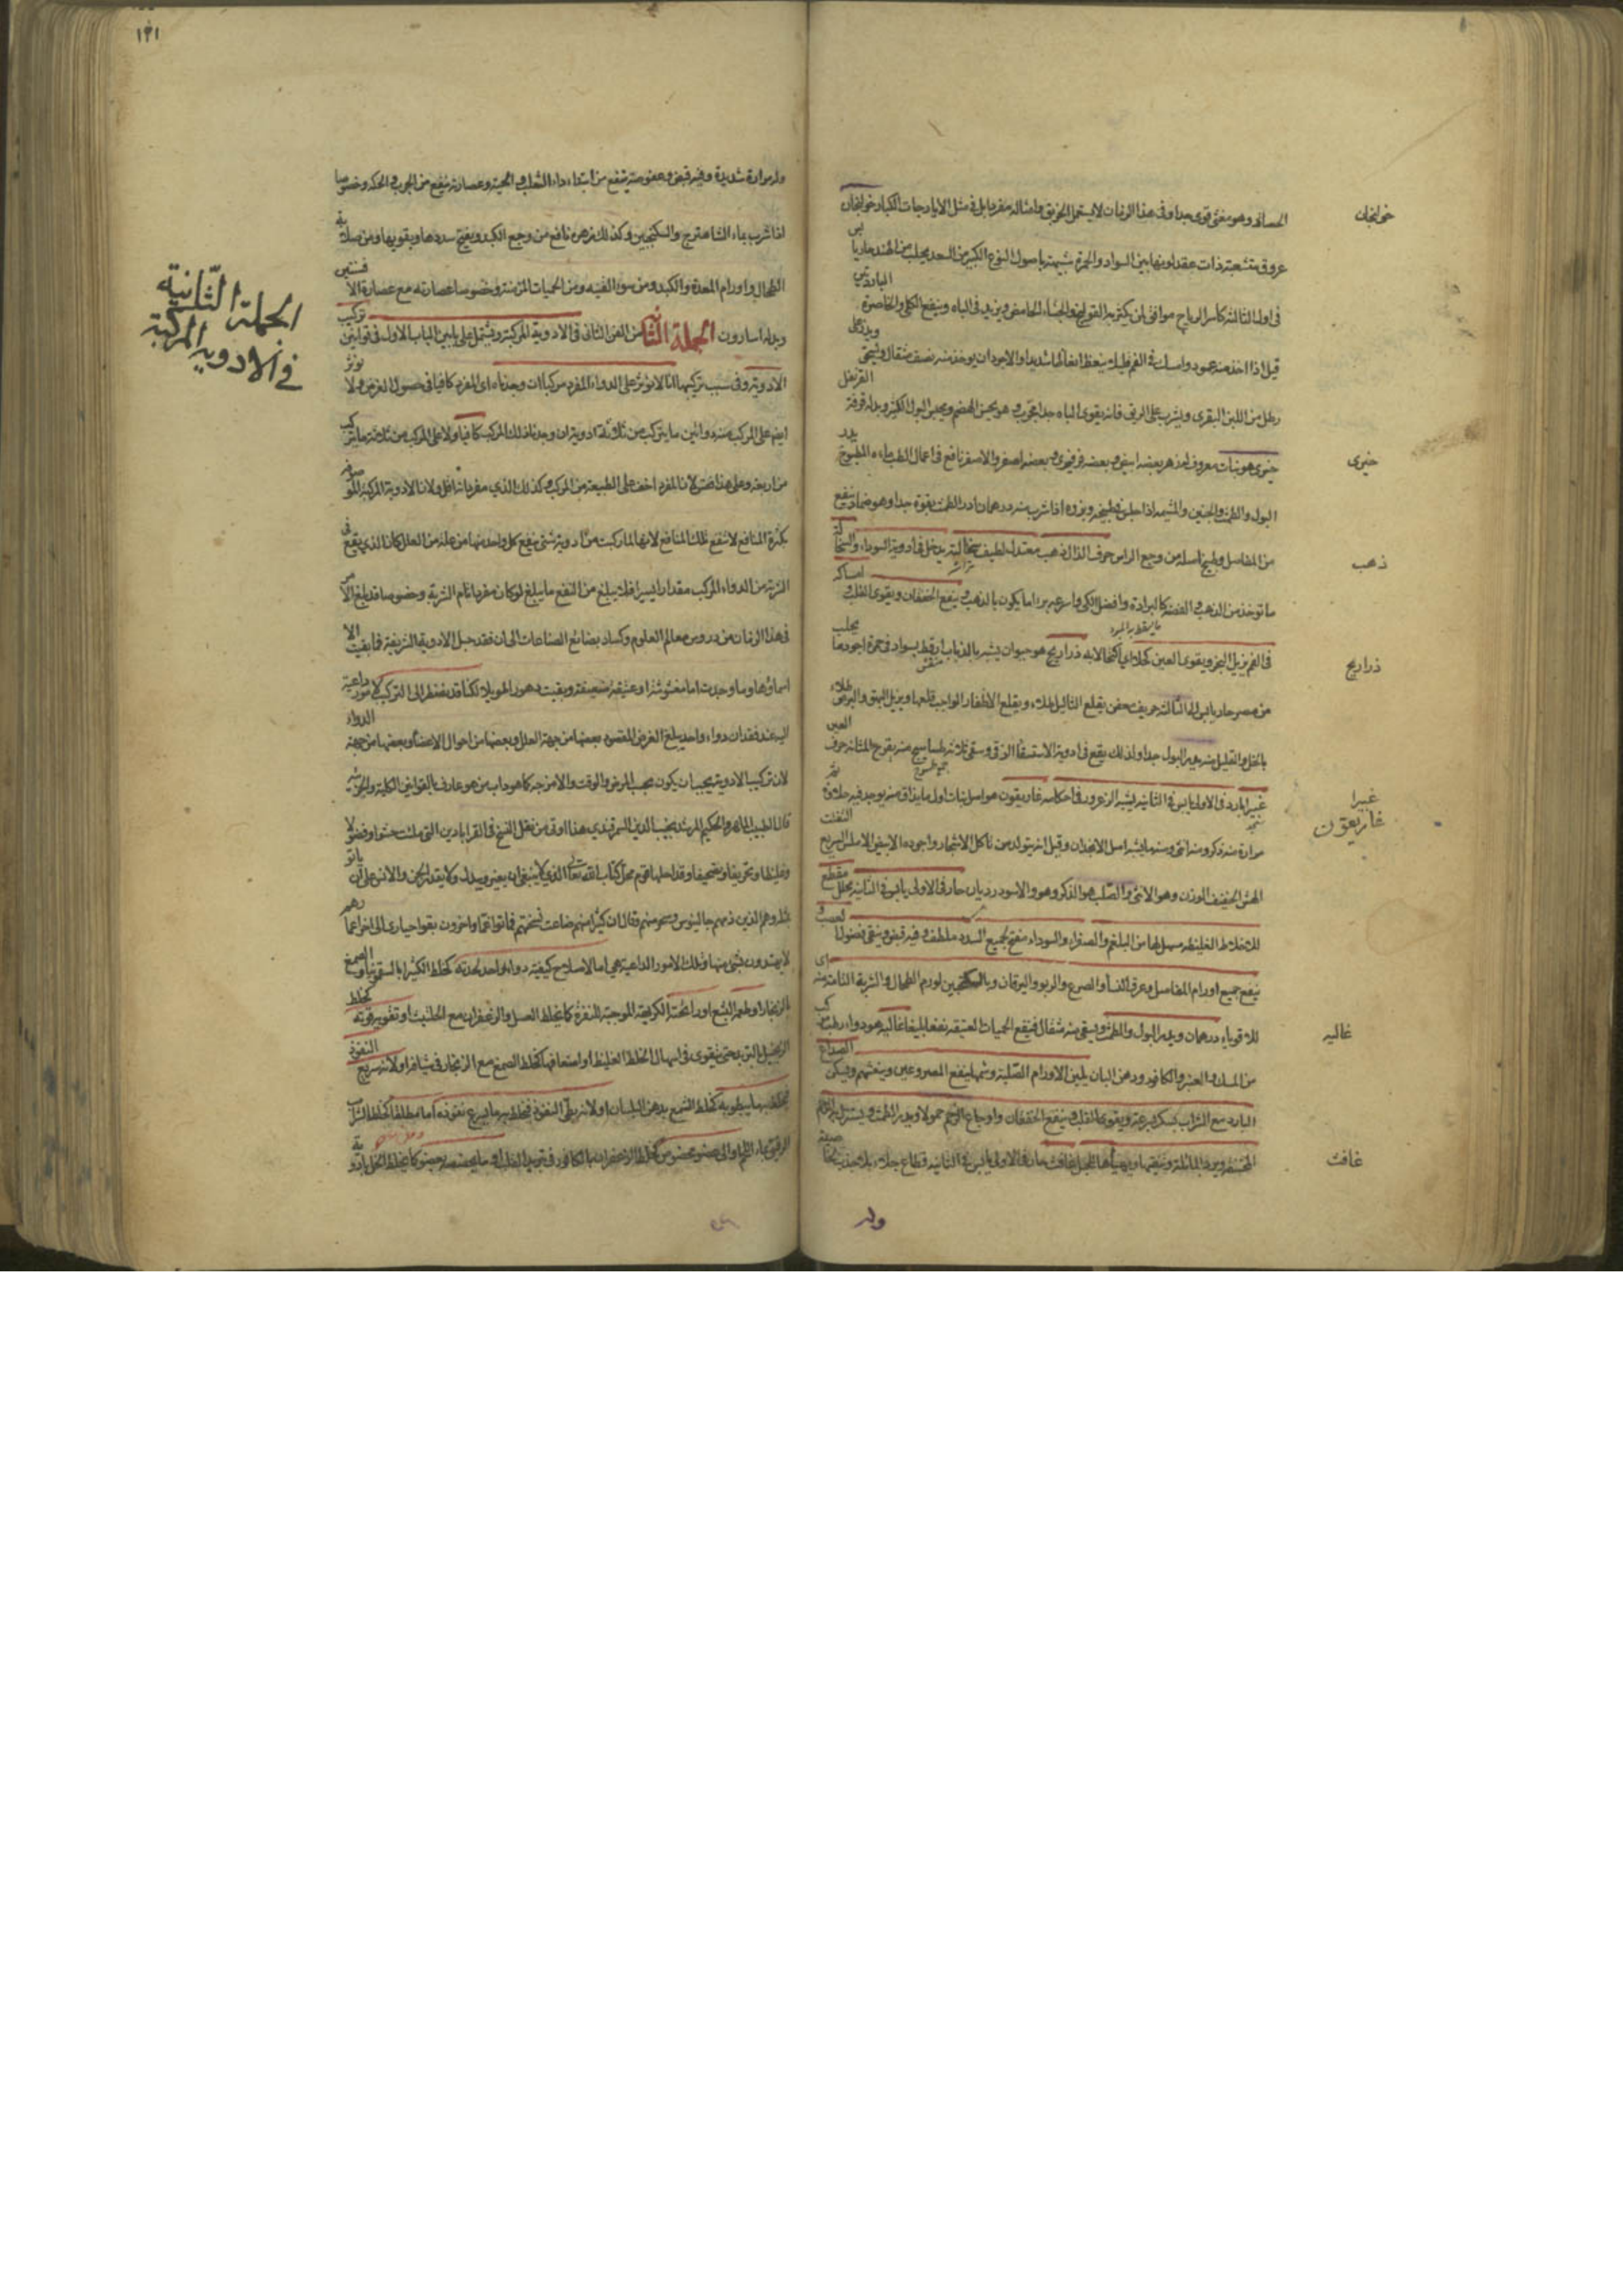 الحسالة وهو مغثى قوى جدا وفى هذا الزمان لا يستعمل الخربق وامثاله مفردا بل فى مثل الايارجات الكبار خولنجان
خولنجان
عروق متشعبة ذات عقد لونها بين السواد والحمرة شبيهة باصول النوع الكبير من السعد يجلب من الهند حار يابس
فى اول الثالثة كاسر الرياح موافق لمن يكثر به القولنج والجشاء الحامض ويزيد فى الباه وينفع الكلى والخاصرة الباردتين
قيل اذا اخذ منه عود وامسك فى الفم قليلا ينعظ انعاظا شديدا والاجود ان يوخذ منه نصف مثقال ويذر على
رطل من اللبن البقرى ويشرب على الريق فانه يقوى الباه جدا مجرب وهو يحسن الهضم ويحبس البول الكثير وبدله قرفة القرنفل
خيرى هو نبات معروف له زهر بعضه ابيض وبعضه فرفيرى وبعضه اصفر والاصفر نافع فى اعمال الطب ماءه المطبوخ يدر
خيرى
البول والطمث والجنين والمشيمة اذا جلس فى طبيخه وبزره اذا شرب منه درهمان ادر الطمث بقوة جدا وهو ضمادا ينفع
من المفاصل وطبيخ اصله من وجع الراس حرف الذال ذهب معتدل لطيف سحالته يدخل فى ادوية السوداء والسحالة
ذهب
ما توخذ من الذهب والفضة كالبرادة وافضل الكى واسرعه برءا ما يكون بالذهب وينفع الخفقان ويقوى القلب امساكه
ما يسقط بالمبرد
فى الفم يزيل البخر ويقوى العين كحلا اى اكتحالا به ذراريح هو حيوان يشبه بالذباب ارقط بسواد فى حمرة اجودها يجلب
ذراريح
من مصر حار يابس الى الثالثة حريف معفن يقلع الثآليل طلاء ويقلع الاظفار الواجب قلعها ويزيل البهق والبرص طلاء
بالخل والقليل منه يدر البول جدا ولذلك يقع فى ادوية الاستسقاء الزقى وسقى ثلاثة طساسيج منه يقرح المثانة حرف الغين
جمع طسوج
غبيرا بارد فى الاولى يابس فى الثانية يشبه الزعرور فى احكامه غاريقون هو اصل نبات اول ما يذاق منه يوجد فيه حلاوة ثم
غبيرا
غاريقون
مرارة منه ذكر ومنه انثى ومنهما يشبه اصل الانجدان وقيل انه يتولد من تاكل الاشجار واجوده الابيض الاملس السريع التفتت
الهش الخفيف الوزن وهو الانثى والصلب هو الذكر وهو والاسود رديان حار فى الاولى يابس فى الثانية محلل مقطع
للاخلاط الغليظة مسهل لها من البلغم والصفراء والسوداء مفتح لجميع السدد ملطف وفيه قبض وينقى فضول العصب و
ينفع جميع اورام المفاصل وعرق النسا والصرع والربو واليرقان وبالسكنجبين لورم الطحال والشربة التامة منه اى
للاقوياء درهمان ويدر البول والطمث ويسقى منه مثقال فينفع الحميات العتيقة نفعا بليغا غالية هو دواء رطب مركب
غاليه
من المسك والعنبر والكافور ودهن البان يلين الاورام الصلبة وشمها ينفع المصروعين وينعشهم ويسكن الصداع
البارد مع الشراب يسكر بسرعة ويقوى القلب وينفع الخفقان واوجاع الرحم حمولا ويدر الطمث ويستنزل الرحم
المختنقة ويرد المائلة وينقيها ويهيأها للحبل غافت حار فى الاولى يابس فى الثانية قطاع جلاء بلا جذب لخاصية
غافت
وله
١٣١
وله مرارة شديدة وفيه قبض وعفوصة ينفع من ابتداء داء الثعلب والحية وعصارته ينفع من الجرب والحكة وخصوصا
اذا شرب بماء الشاهترج والسكنجبين وكذلك زهره نافع من وجع الكبد ويفتح سددها ويقويها ومن صلابة
الطحال واورام المعدة والكبد ومن سوء القنية ومن الحميات المزمنة وخصوصا عصارته مع عصارة الافسنتين
وبدله اسارون الجملة الثانية من الفن الثانى فى الادوية المركبة ويشتمل على بابين الباب الاول فى قوانين تركيب
الجملة الثانية
فى الادوية المركبة
الادوية وفى سبب تركيبها انا لا نؤثر على الدواء المفرد مركبا ان وجدناه اى المفرد كافيا فى حصول الغرض ولا نوثر
ايضا على المركب من دوائين ما يتركب من ثلاثة ادوية ان وجدنا ذلك المركب كافيا ولا على المركب من ثلثة ما يتركب
من اربعة وعلى هذا فقس لان المفرد اخف على الطبيعة من المركب وكذلك الذى مفرداته اقل ولان الادوية المركبة الموصوفة
بكثرة المنافع لا تنفع تلك المنافع لانها لما ركبت من ادوية شتى ينفع كل واحد منها من علة من العلل كان الذى يقع فى
الشربة من الدواء المركب مقدارا يسيرا فلا يبلغ من النفع ما يبلغ لو كان مفردا تام الشربة وخصوصا قد بلغ الامر
فى هذا الزمان من دروس معالم العلوم وكساد بضائع الصناعات الى ان فقد جل الادوية الشريفة فما بقيت الا
اسماؤها وما وجدت اما مغشوشة او عتيقة ضعيفة وبقيت دهورا طويلا لكنا قد نضطر الى التركيب لامور داعية
اليه عند فقدان دواء واحد يبلغ الغرض المقصود بعضها من جهة العلل وبعضها من احوال الاعضاء وبعضها من جهة الدواء
لان تركيب الادوية يجب ان يكون بحسب المرض والوقت والامزجة كما هو داب من هو عارف بالقوانين الكلية والجزئية
قال الطبيب الماهر والحكيم المرشد نجيب الدين السمرقندى هذا اوقى من نقل النسخ فى القراباذين التى ملئت حشوا وفضولا
وتغليطا وتحريفا وتصحيفا وقد احلها قوم محل كتاب الله تعالى الذى لا ينبغى ان يغير ويبدل ولا يقدر الجن والانس على ان ياتوا
بمثله وهم الذين ذمهم جالينوس وسخر منهم وقال ان كثيرا منهم ضاعت نسختهم فماتوا غما واخرون بقوا حيارى الى اخر اعمارهم
لا يهتدون بشئ منها وتلك الامور الداعية هى اما لاصلاح كيفية دواء واحد لحدته كخلط الكثيرا بالسقمونيا والصمغ
بالزنجار او طعمه البشع او رائحته الكريهة الموجبة للنفرة كما يخلط العسل والزعفران مع الحلتيت او تقوية قوته كخلط
الزنجبيل بالتربد حتى يقوى فى اسهال الخلط الغليظ او اضعافها كخلط الصمغ مع الزنجار فى شيافه او لانه سريع النفوذ
فيخلط بها يبطؤ به كخلط الشمع بدهن البلسان او لانه بطئ النفوذ فيخلط به ما يسرع نفوذه اما مطلقا كخلط الشراب
الرقيق بماء اللحم او الى عضو مخصوص كخلط الزعفران بالكافور فى تبريد القلب او ما يخصصه بعضو كما يخلط الخل بادوية